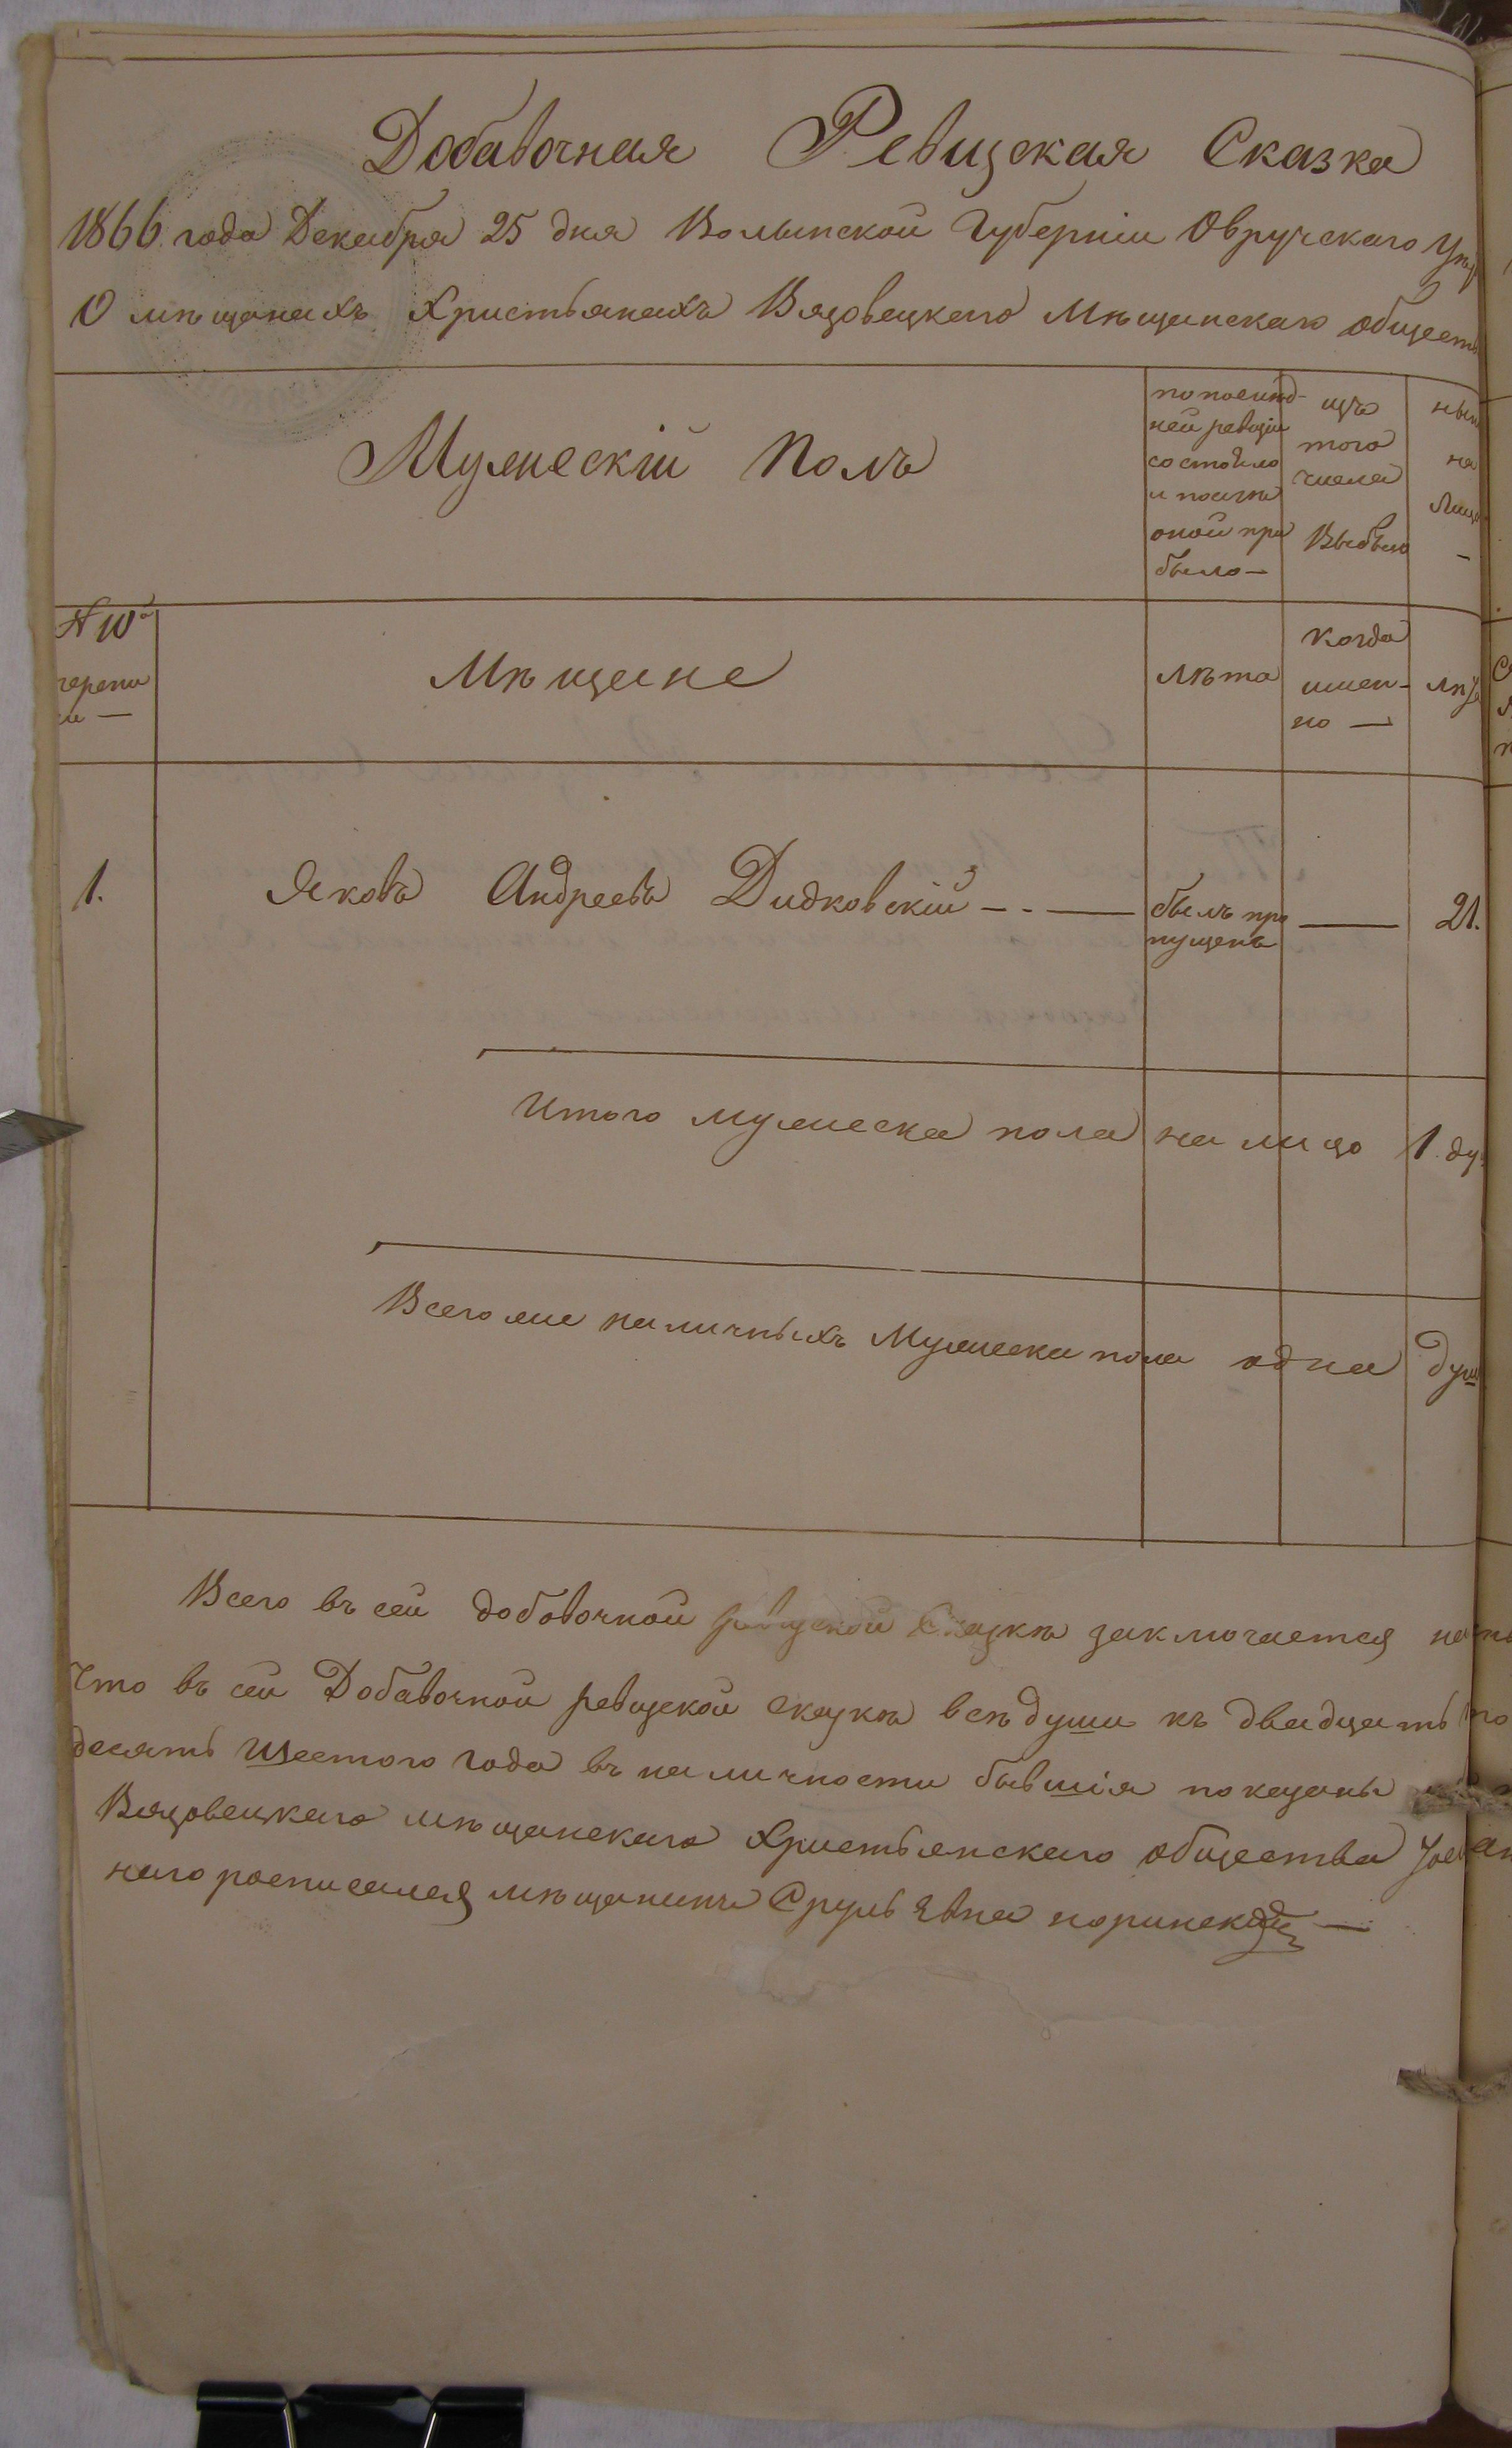 Добавочная Ревизская Сказка
1866 года Декабря 25 дня Волынской Губерніи Овручскаго Уѣз
О мѣщанахъ Христьянахъ Вязовецкаго Мѣщанскаго общест
Мужескій Полъ
по послѣд-
ней ревизіи
состояло
и послѣ
оной при
было —
изъ
того
числа
Выбыло
нын
на
лицо
—
№ 10й
черепи
си —
Мѣщане
лѣта
когда
имен-
но —
лѣта
1.
Яковъ Андреевъ Дидковскій — - —
былъ про
пущенъ
—
21.
Итого мужеска пола на лицо 1. ду
Всего же наличныхъ Мужеска пола одна душ
Всего въ сей добовочной ревизской Сказкѣ заключается
Что въ сей Добавочной ревизской сказкѣ всѣ души къ двадцать
десять шестого года въ наличности бывшія показаны
Вязовецкаго мѣщанскаго Христьянскаго общества
наго росписался мѣщанинъ Сруль